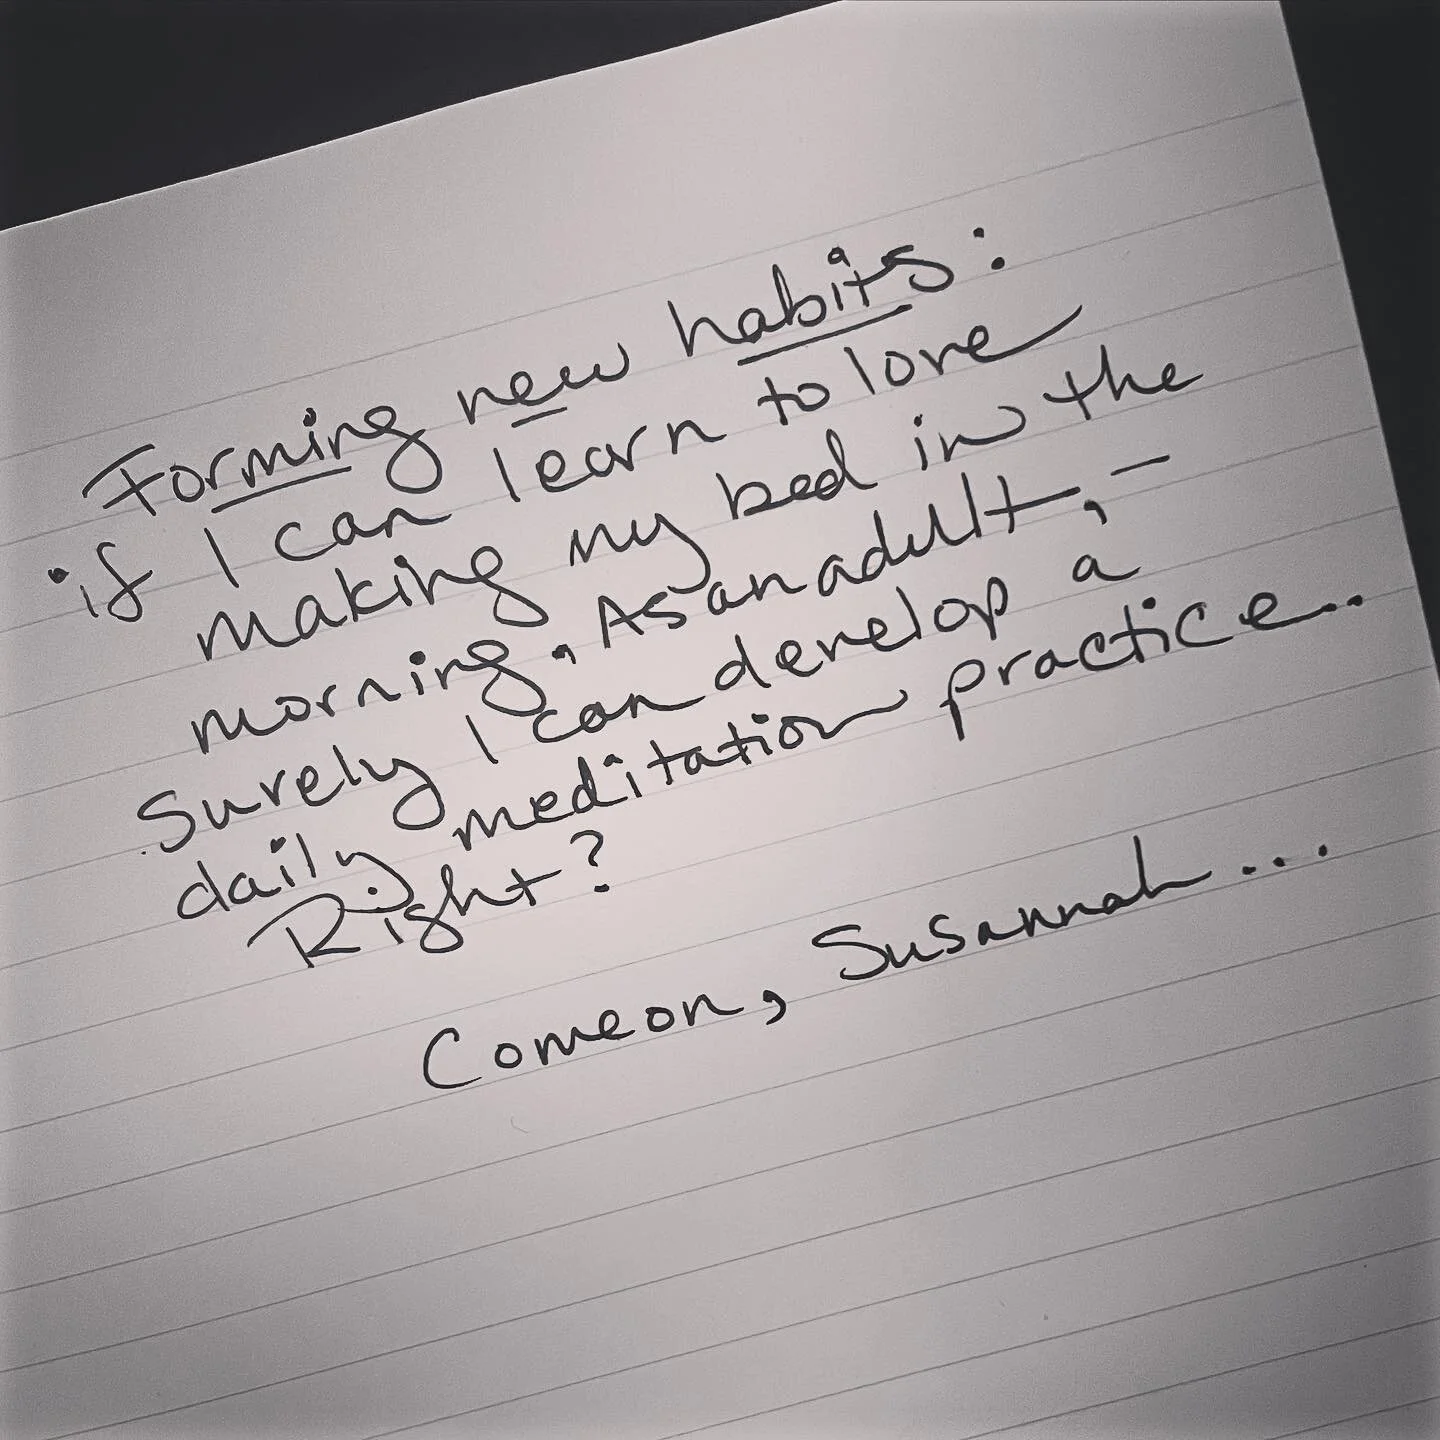 Forming new habits:
• if I can learn to love
making my bed in the
morning, As an adult, –
Surely I can develop a
daily meditation practice...
Right?
Come on, Susannah...